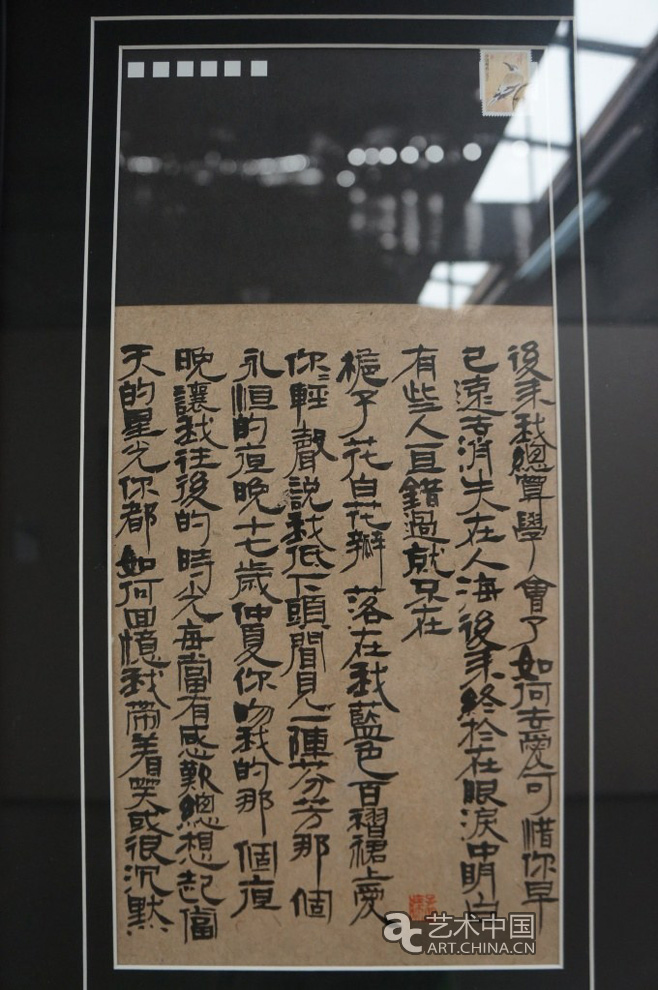 後来我總算學會了如何去愛可惜你早
已遠去消失在人海後来終於在眼淚中明白
有些人一旦錯過就不在
梔子花白花瓣落在我藍色百褶裙上愛
你輕聲說我低下頭聞見一陣芬芳那個
永恒的夜晚十七歲仲夏你吻我的那個夜
晚讓我往後的時光每當有感歎總想起當
天的星光你都如何回憶我帶着笑或很沉默
艺术中国
ART.CHINA.CN